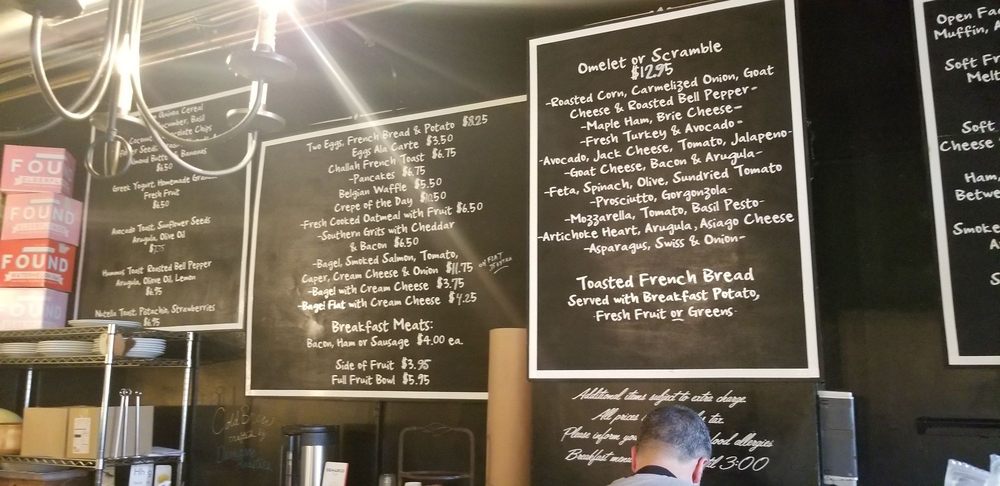 FOUND
FOUND
FOUND
Quinoa Cereal
Cucumber, Basil
Chocolate Chips
Almond Butter Bananas
$6.50
Greek Yogurt, Homemade
Fresh Fruit
$6.50
Avocado Toast, Sunflower Seeds
Arugula, Olive Oil
Hummus Toast Roasted Bell Pepper
Arugula, Olive Oil, Lemon
$6.95
Nutella Toast, Pistachio, Strawberries
$6.95
Two Eggs, French Bread & Potato $8.25
Eggs Ala Carte $3.50
Challah French Toast $6.75
-Pancakes $6.75
Belgian Waffle $5.50
Crepe of the Day
-Fresh Cooked Oatmeal with Fruit $6.50
-Southern Grits with Cheddar
& Bacon $6.50
-Bagel, Smoked Salmon, Tomato,
Caper, Cream Cheese & Onion $11.75
-Bagel with Cream Cheese $3.75
-Bagel Flat with Cream Cheese $4.25
Breakfast Meats:
Bacon, Ham or Sausage $4.00 ea.
Side of Fruit $3.95
Full Fruit Bowl $5.95
Omelet or Scramble
$12.95
-Roasted Corn, Carmelized Onion, Goat
Cheese & Roasted Bell Pepper-
-Maple Ham, Brie Cheese-
-Fresh Turkey & Avocado-
-Avocado, Jack Cheese, Tomato, Jalapeno-
-Goat Cheese, Bacon & Arugula-
-Feta, Spinach, Olive, Sundried Tomato
-Prosciutto, Gorgonzola-
-Mozzarella, Tomato, Basil Pesto-
-Artichoke Heart, Arugula, Asiago Cheese
-Asparagus, Swiss & Onion-
Toasted French Bread
Served with Breakfast Potato,
Fresh Fruit or Greens
Additional items subject to extra charge
All prices tax.
Please inform you food allergies
Breakfast menu 3:00
Open Fa
Muffin, A
Soft Fr
Melt
Soft
Cheese
Ham,
Betwe
Smoke
Cold